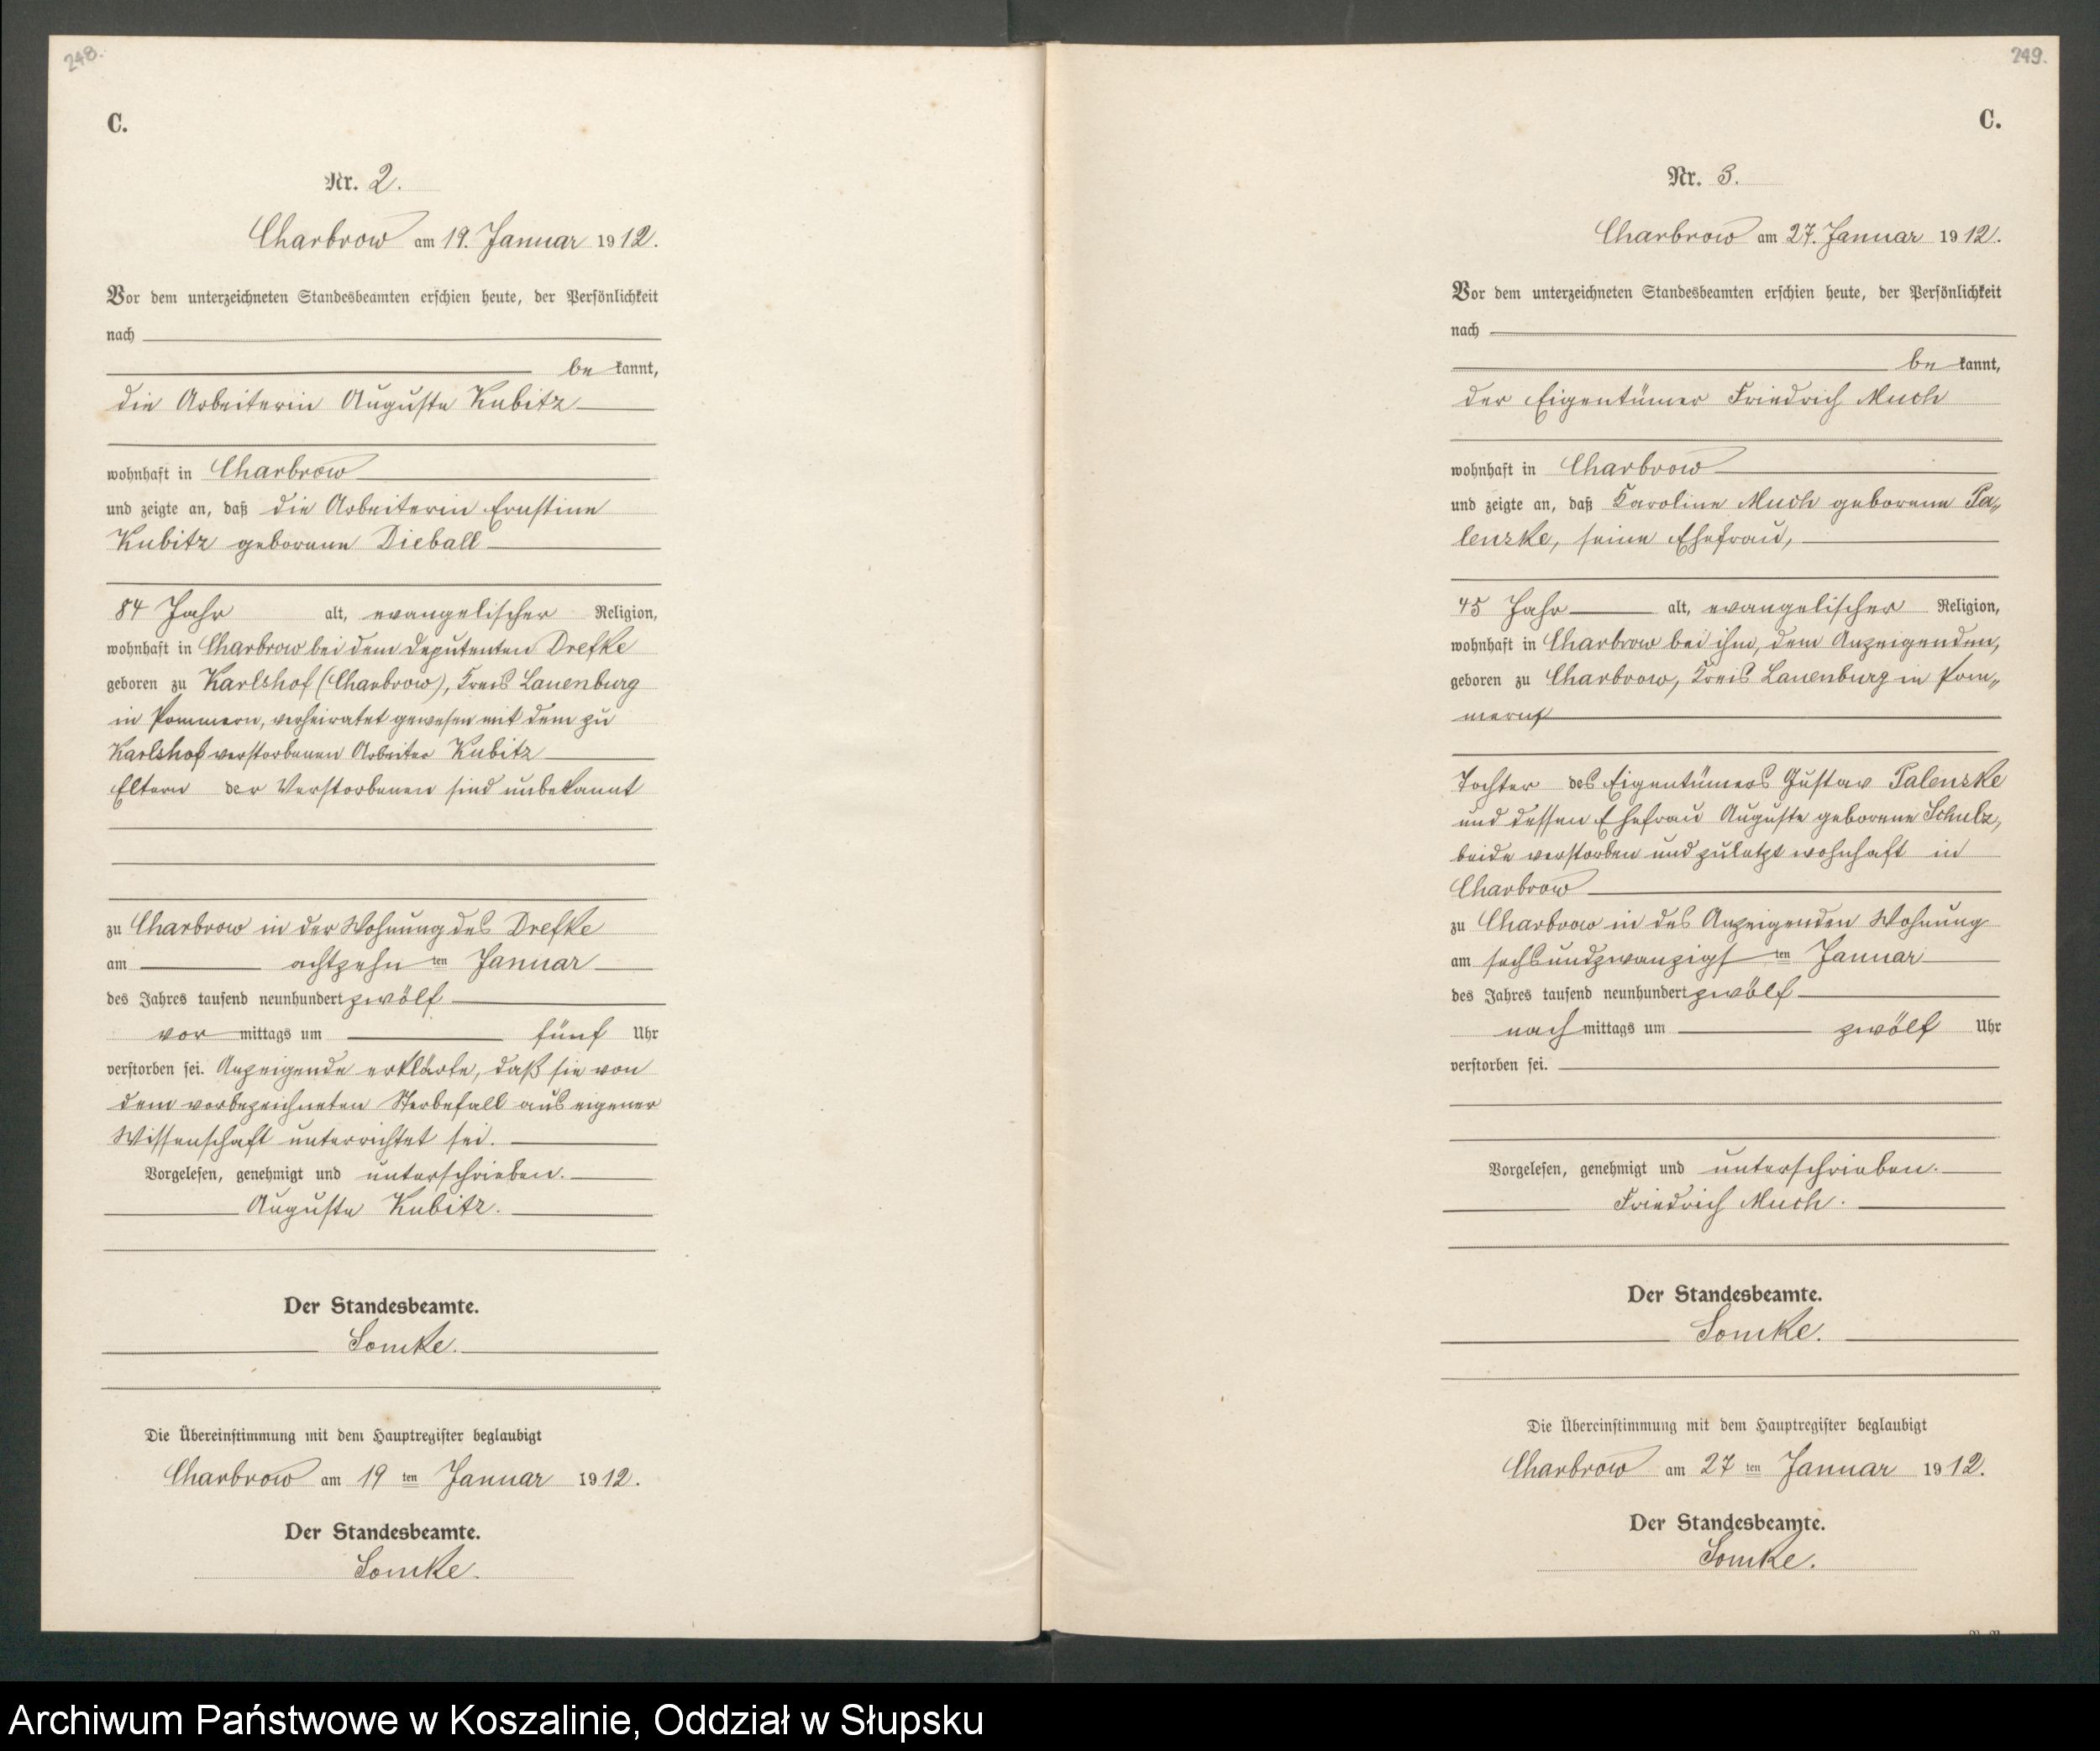 248.
C.
Nr. 2.
Charbrow am 19. Januar 1912.
Vor dem unterzeichneten Standesbeamten erschien heute, der Persönlichkeit
nach
be kannt,
die Arbeiterin Auguste Kubitz
wohnhaft in Charbrow
und zeigte an, daß die Arbeiterin Ernstine
Kubitz geborene Dieball
84 Jahr alt, evangelischer Religion,
wohnhaft in Charbrow bei dem Deputenten Drefke
geboren zu Karlshof (Charbrow), Kreis Lauenburg
in Pommern, verheiratet gewesen mit dem zu
Karlshof verstorbenen Arbeiter Kubitz
Eltern der Verstorbenen sind unbekannt
zu Charbrow in der Wohnung des Drefke
am achtzehn ten Januar
des Jahres tausend neunhundert zwölf
vor mittags um fünf Uhr
verstorben sei. Anzeigende erklärte, daß sie von
dem vorbezeichneten Sterbefall aus eigener
Wissenschaft unterrichtet sei.
Vorgelesen, genehmigt und unterschrieben.
Auguste Kubitz.
Der Standesbeamte.
Somke.
Die Übereinstimmung mit dem Hauptregister beglaubigt
Charbrow am 19 ten Januar 1912.
Der Standesbeamte.
Somke.
249.
C.
Nr. 3.
Charbrow am 27. Januar 1912.
Vor dem unterzeichneten Standesbeamten erschien heute, der Persönlichkeit
nach
be kannt,
der Eigentümer Friedrich Much
wohnhaft in Charbrow
und zeigte an, daß Karoline Much geborene Pa„
lenske, seine Ehefrau,
45 Jahr alt, evangelischer Religion,
wohnhaft in Charbrow bei ihm, dem Anzeigenden,
geboren zu Charbrow, Kreis Lauenburg in Pom„
mern
Tochter des Eigentümers Gustav Palenske
und dessen Ehefrau Auguste geborene Schulz,
beide verstorben und zuletzt wohnhaft in
Charbrow
zu Charbrow in des Anzeigenden Wohnung
am sechsundzwanzigs ten Januar
des Jahres tausend neunhundert zwölf
nach mittags um zwölf Uhr
verstorben sei.
Vorgelesen, genehmigt und unterschrieben.
Friedrich Much.
Der Standesbeamte.
Somke.
Die Übereinstimmung mit dem Hauptregister beglaubigt
Charbrow am 27 ten Januar 1912.
Der Standesbeamte.
Somke.
Archiwum Państwowe w Koszalinie, Oddział w Słupsku